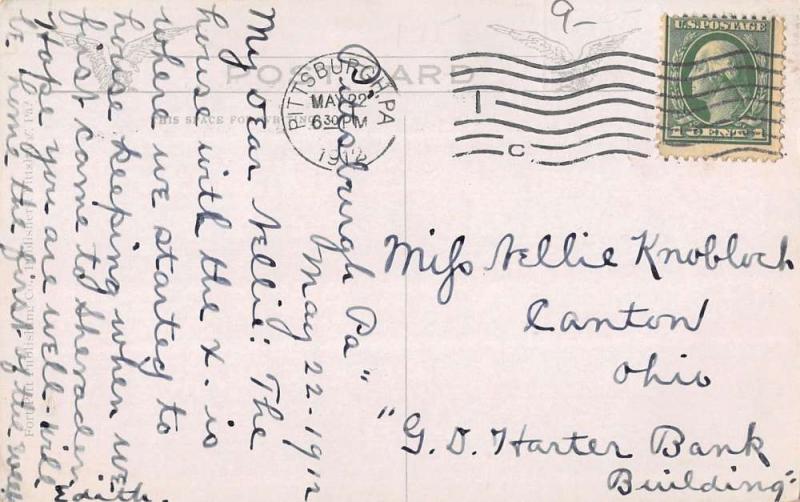 a-
U.S. POSTAGE
1 CENT 1
POST CARD
PITTSBURGH, PA
MAY 22
630 PM
1912
1
C
THIS SPACE FOR WRITING
Pittsburgh Pa"
May 22-1912
My dear Nellie: The
house with the x. is
where we started to
house keeping when we
first came to Sheraden
Hope you are well- will
be home the first of the week
Edith.
Miss Nellie Knobloch
Canton
Ohio
"G. D. Harter Bank
Building"
Fort Pitt Publishing Co., Publishers, Pittsburg, Pa.